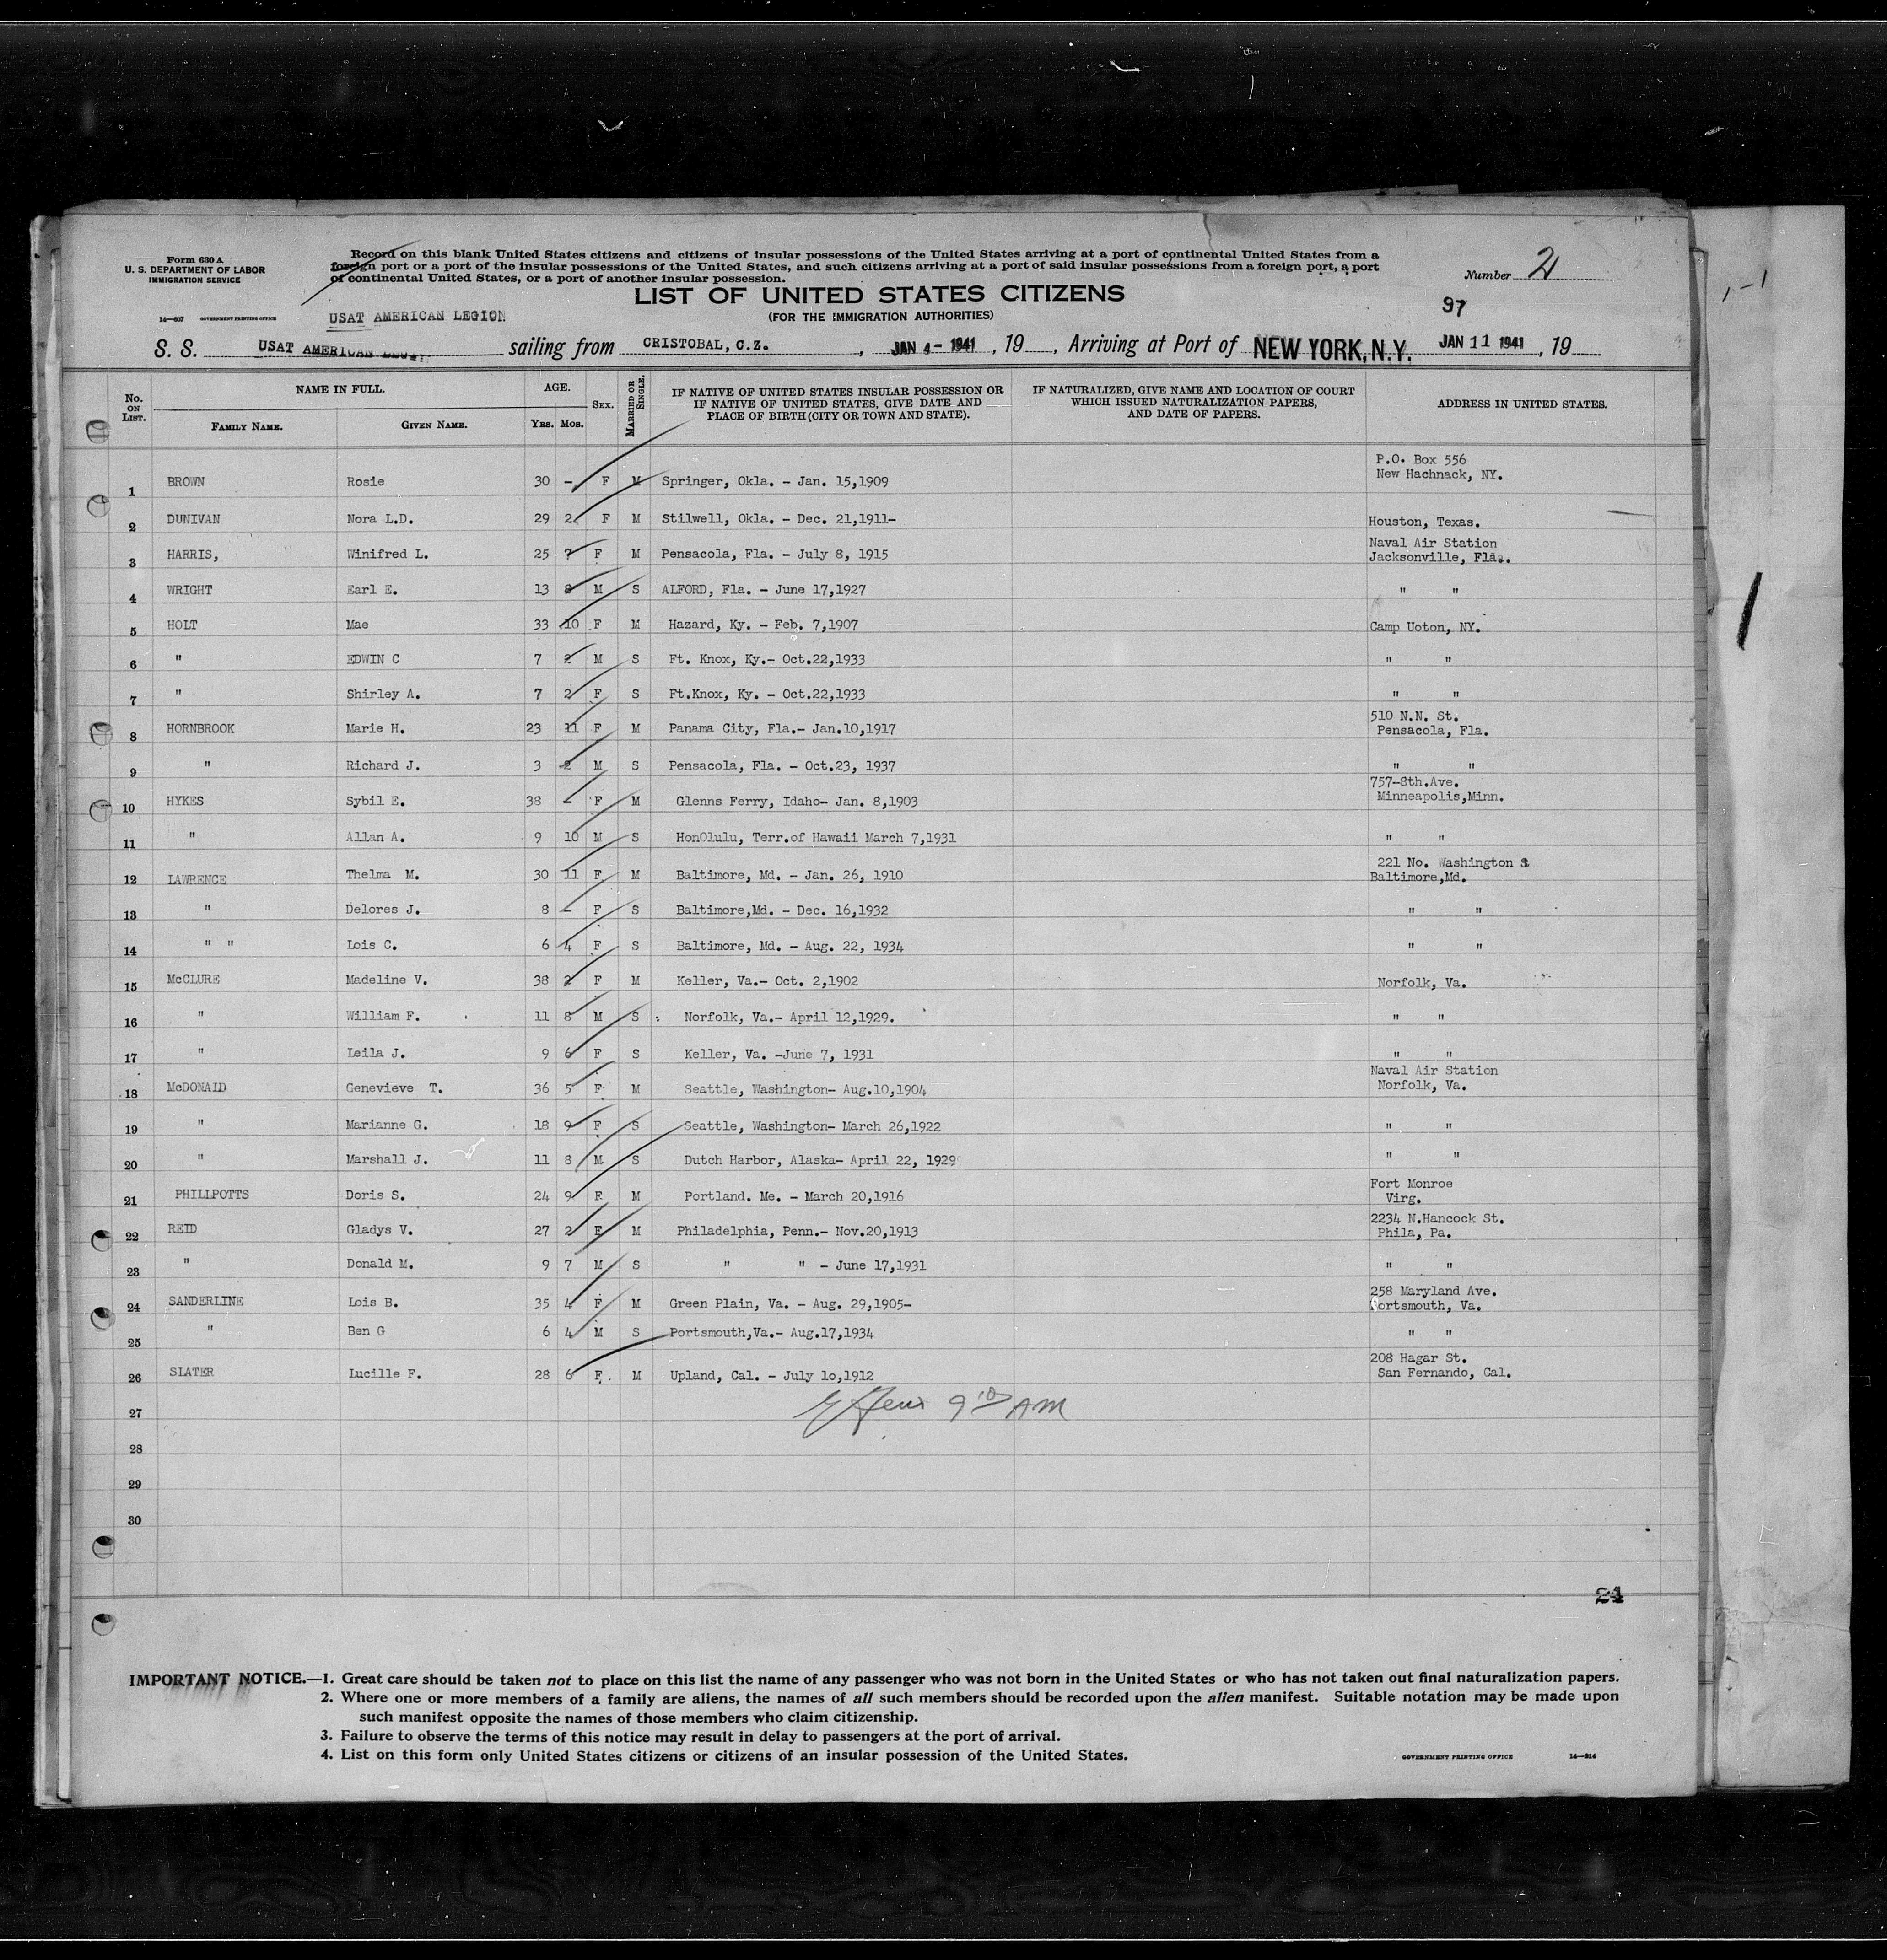 Form 630 A
U. S. DEPARTMENT OF LABOR
IMMIGRATION SERVICE
14—607 GOVERNMENT PRINTING OFFICE
Record on this blank United States citizens and citizens of insular possessions of the United States arriving at a port of continental United States from a
foreign port or a port of the insular possessions of the United States, and such citizens arriving at a port of said insular possessions from a foreign port, a port
of continental United States, or a port of another insular possession.
Number 21
LIST OF UNITED STATES CITIZENS
(FOR THE IMMIGRATION AUTHORITIES)
97
USAT AMERICAN LEGION
S. S. USAT AMERICAN sailing from CRISTOBAL, C.Z. , JAN 4- 1941 , 19 , Arriving at Port of NEW YORK, N.Y. JAN 11 1941 , 19
No. ON LIST. NAME IN FULL. AGE. SEX. MARRIED OR SINGLE. IF NATIVE OF UNITED STATES INSULAR POSSESSION OR IF NATIVE OF UNITED STATES, GIVE DATE AND PLACE OF BIRTH (CITY OR TOWN AND STATE). IF NATURALIZED, GIVE NAME AND LOCATION OF COURT WHICH ISSUED NATURALIZATION PAPERS, AND DATE OF PAPERS. ADDRESS IN UNITED STATES.
FAMILY NAME. GIVEN NAME. YRS. MOS.
1 BROWN Rosie 30 - F M Springer, Okla. - Jan. 15,1909 P.O. Box 556
New Hachnack, NY.
2 DUNIVAN Nora L.D. 29 2 F M Stilwell, Okla. - Dec. 21,1911- Houston, Texas.
3 HARRIS, Winifred L. 25 7 F M Pensacola, Fla. - July 8, 1915 Naval Air Station
Jacksonville, Fla..
4 WRIGHT Earl E. 13 8 M S ALFORD, Fla. - June 17,1927 " "
5 HOLT Mae 33 10 F M Hazard, Ky. - Feb. 7,1907 Camp Uoton, NY.
6 " EDWIN C 7 2 M S Ft. Knox, Ky.- Oct.22,1933 " "
7 " Shirley A. 7 2 F S Ft.Knox, Ky. - Oct.22,1933 " "
8 HORNBROOK Marie H. 23 11 F M Panama City, Fla.- Jan.10,1917 510 N.N. St.
Pensacola, Fla.
9 " Richard J. 3 2 M S Pensacola, Fla. - Oct.23, 1937 " "
10 HYKES Sybil E. 38 - F M Glenns Ferry, Idaho- Jan. 8,1903 757-8th.Ave.
Minneapolis,Minn.
11 " Allan A. 9 10 M S HonOlulu, Terr.of Hawaii March 7,1931 " "
12 LAWRENCE Thelma M. 30 11 F M Baltimore, Md. - Jan. 26, 1910 221 No. Washington &
Baltimore,Md.
13 " Delores J. 8 - F S Baltimore,Md. - Dec. 16,1932 " "
14 " " Lois C. 6 4 F S Baltimore, Md. - Aug. 22, 1934 " "
15 McCLURE Madeline V. 38 2 F M Keller, Va.- Oct. 2,1902 Norfolk, Va.
16 " William F. 11 8 M S Norfolk, Va.- April 12,1929. " "
17 " Leila J. 9 6 F S Keller, Va. -June 7, 1931 " "
18 McDONALD Genevieve T. 36 5 F M Seattle, Washington- Aug.10,1904 Naval Air Station
Norfolk, Va.
19 " Marianne G. 18 9 F S Seattle, Washington- March 26,1922 " "
20 " Marshall J. 11 8 M S Dutch Harbor, Alaska- April 22, 1929 " "
21 PHILLPOTTS Doris S. 24 9 F M Portland. Me. - March 20,1916 Fort Monroe
Virg.
22 REID Gladys V. 27 2 F M Philadelphia, Penn.- Nov.20,1913 2234 N.Hancock St.
Phila, Pa.
23 " Donald M. 9 7 M S " " - June 17,1931 " "
24 SANDERLINE Lois B. 35 4 F M Green Plain, Va. - Aug. 29,1905- 258 Maryland Ave.
Portsmouth, Va.
25 " Ben G 6 4 M S Portsmouth,Va.- Aug.17,1934 " "
26 SLATER Lucille F. 28 6 F. M Upland, Cal. - July 10,1912 208 Hagar St.
San Fernando, Cal.
27 9 10 AM
28
29
30
24
IMPORTANT NOTICE.—1. Great care should be taken not to place on this list the name of any passenger who was not born in the United States or who has not taken out final naturalization papers.
2. Where one or more members of a family are aliens, the names of all such members should be recorded upon the alien manifest. Suitable notation may be made upon
such manifest opposite the names of those members who claim citizenship.
3. Failure to observe the terms of this notice may result in delay to passengers at the port of arrival.
4. List on this form only United States citizens or citizens of an insular possession of the United States.
GOVERNMENT PRINTING OFFICE 14—214